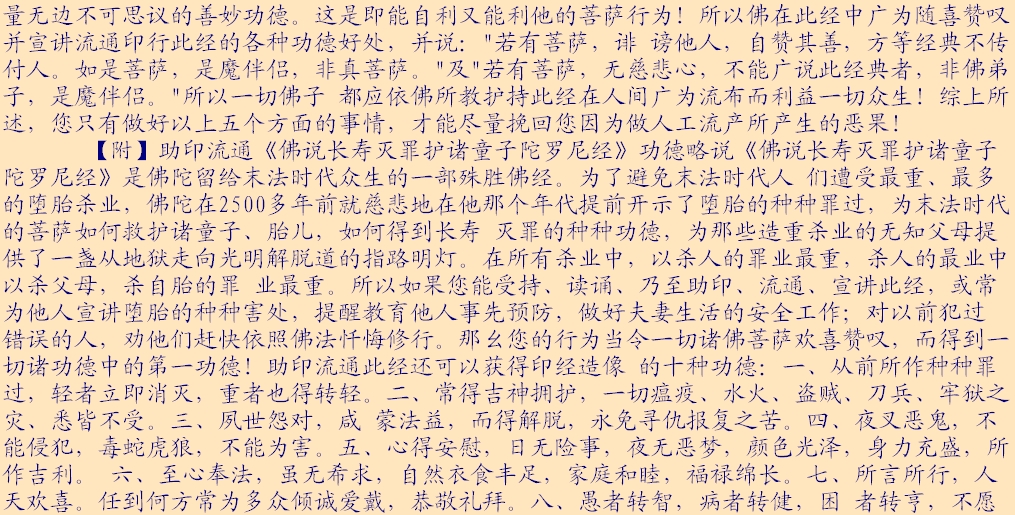 量无边不可思议的善妙功德。这是即能自利又能利他的菩萨行为！所以佛在此经中广为随喜赞叹
并宣讲流通印行此经的各种功德好处，并说："若有菩萨，诽 谤他人，自赞其善，方等经典不传
付人。如是菩萨，是魔伴侣，非真菩萨。"及"若有菩萨，无慈悲心，不能广说此经典者，非佛弟
子，是魔伴侣。"所以一切佛子 都应依佛所教护持此经在人间广为流布而利益一切众生！综上所
述，您只有做好以上五个方面的事情，才能尽量挽回您因为做人工流产所产生的恶果！
【附】助印流通《佛说长寿灭罪护诸童子陀罗尼经》功德略说《佛说长寿灭罪护诸童子
陀罗尼经》是佛陀留给末法时代众生的一部殊胜佛经。为了避免末法时代人 们遭受最重、最多
的堕胎杀业，佛陀在2500多年前就慈悲地在他那个年代提前开示了堕胎的种种罪过，为末法时代
的菩萨如何救护诸童子、胎儿，如何得到长寿 灭罪的种种功德，为那些造重杀业的无知父母提
供了一盏从地狱走向光明解脱道的指路明灯。在所有杀业中，以杀人的罪业最重，杀人的最业中
以杀父母，杀自胎的罪 业最重。所以如果您能受持、读诵、乃至助印、流通、宣讲此经，或常
为他人宣讲堕胎的种种害处，提醒教育他人事先预防，做好夫妻生活的安全工作；对以前犯过
错误的人，劝他们赶快依照佛法忏悔修行。那幺您的行为当令一切诸佛菩萨欢喜赞叹，而得到一
切诸功德中的第一功德！助印流通此经还可以获得印经造像 的十种功德：一、从前所作种种罪
过，轻者立即消灭，重者也得转轻。二、常得吉神拥护，一切瘟疫、水火、盗贼、刀兵、牢狱之
灾、悉皆不受。三、夙世怨对，咸 蒙法益，而得解脱，永免寻仇报复之苦。四、夜叉恶鬼，不
能侵犯，毒蛇虎狼，不能为害。五、心得安慰，日无险事，夜无恶梦，颜色光泽，身力充盛，所
作吉利。 六、至心奉法，虽无希求，自然衣食丰足，家庭和睦，福禄绵长。七、所言所行，人
天欢喜。任到何方常为多众倾诚爱戴，恭敬礼拜。八、愚者转智，病者转健，困 者转亨，不愿